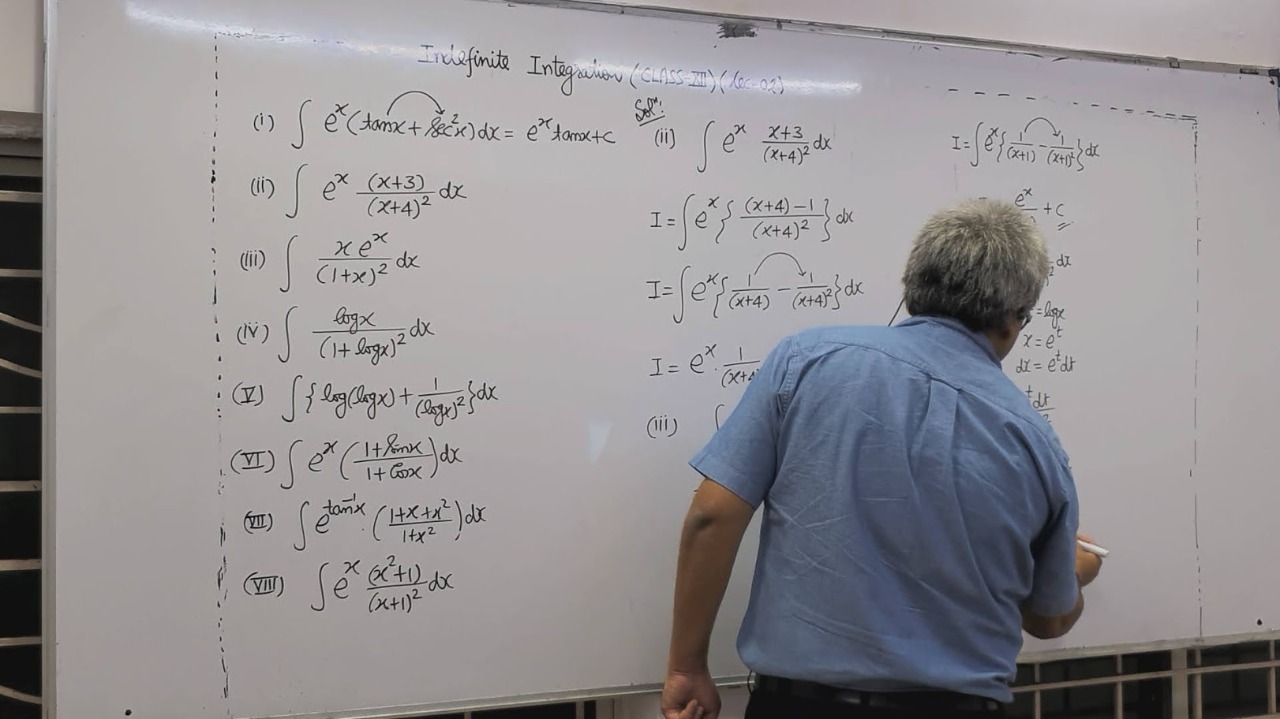 Indefinite Integration (CLASS-XII) (Lec-02)
(i) ∫ eˣ(tanx + sec²x)dx = eˣ tanx + c
(ii) ∫ eˣ (x+3)/(x+4)² dx
(iii) ∫ x eˣ/(1+x)² dx
(iv) ∫ logx/(1+logx)² dx
(V) ∫{log(logx) + 1/(logx)²}dx
(VI) ∫ eˣ ((1+sinx)/(1+cosx))dx
(VII) ∫ e^(tan⁻¹x) · ((1+x+x²)/(1+x²))dx
(VIII) ∫ eˣ (x²+1)/(x+1)² dx
Solⁿ:
(ii) ∫ eˣ (x+3)/(x+4)² dx
I = ∫ eˣ{((x+4)-1)/(x+4)²}dx
I = ∫ eˣ{1/(x+4) - 1/(x+4)²}dx
I = eˣ · 1/(x+4
(iii) ∫
I = ∫ eˣ{1/(x+1) - 1/(x+1)²}dx
eˣ + c
dx
= logx
x = eᵗ
dx = eᵗdt
dt